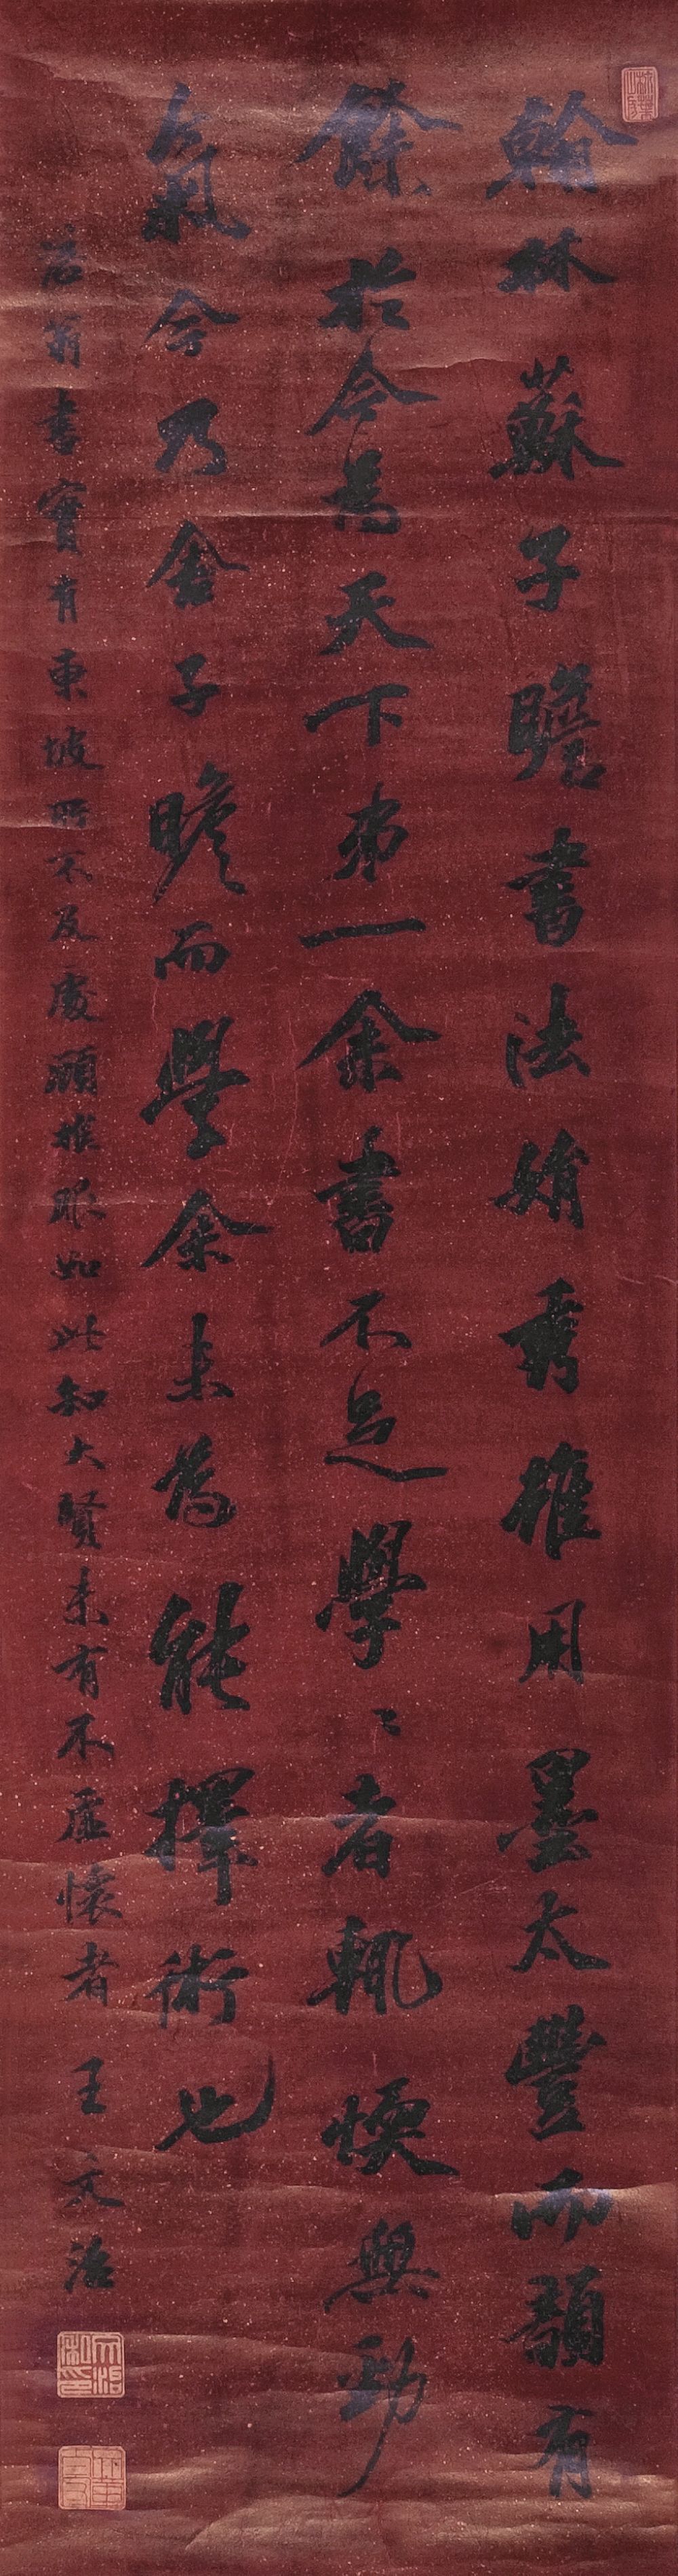 翰林蘇子瞻書法娟秀雖用墨太豐而韻有
餘於今為天下弟一余書不足學〻者輒愞無勁
氣今乃舍子瞻而學余未為能擇術也
涪翁書實有東坡所不及處顧推服如此知大賢未有不虛懷者 王文治